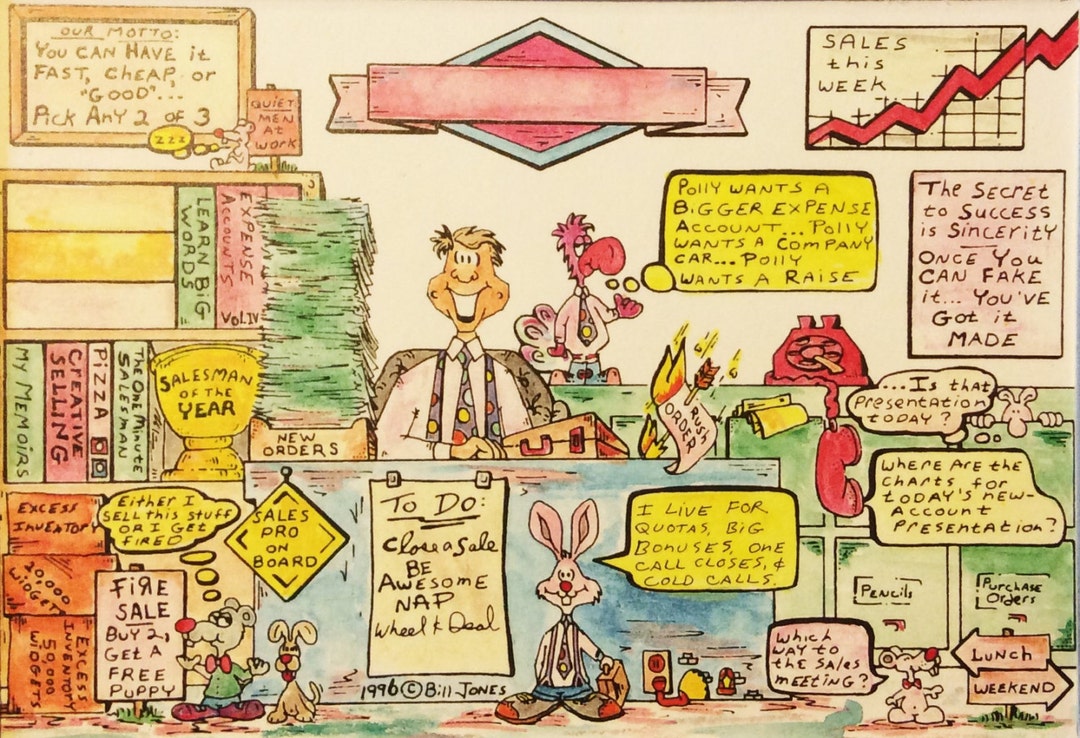 OUR MOTTO:
YOU CAN HAVE it
FAST, CHEAP, or
"GOOD"...
Pick ANY 2 OF 3
zzz
QUIET
MEN
At
WORK
SALES
this
WEEK
LEARN BIG
WORDS
EXPENSE
ACCOUNTS
VOL.IV
POLLY WANTS A
BIGGER EXPENSE
ACCOUNT... POLLY
WANTS A COMPANY
CAR... POLLY
WANTS A RAISE
The SECRET
to SUCCESS
is SINCERITY
ONCE YOU
CAN FAKE
it... YOU'VE
Got it
MADE
MY MEMOIRS
CREATIVE
SELLING
PIZZA
The ONE MINUTE
SALESMAN
SALESMAN
OF THE
YEAR
NEW
ORDERS
RUSH
ORDER
...Is that
PRESENTATION
TODAY?
WHERE ARE the
CHARTS FOR
today's NEW-
ACCOUNT
PRESENTATION?
EXCESS
INVENTORY
20,000
WIDGETS
EXCESS
INVENTORY
50,000
WIDGETS
EITHER I
SELL THIS STUFF
OR I GET
FIRED
SALES
PRO
ON
BOARD
FIRE
SALE
BUY 2,
GET A
FREE
PUPPY
TO DO:
Close a Sale
BE
AWESOME
NAP
Wheel & Deal
I LIVE FOR
QUOTAS, BIG
BONUSES, ONE
CALL CLOSES, &
COLD CALLS.
PENCILS
PURCHASE
ORDERS
WHICH
WAY to
the SALES
MEETING?
LUNCH
WEEKEND
1996 © BILL JONES